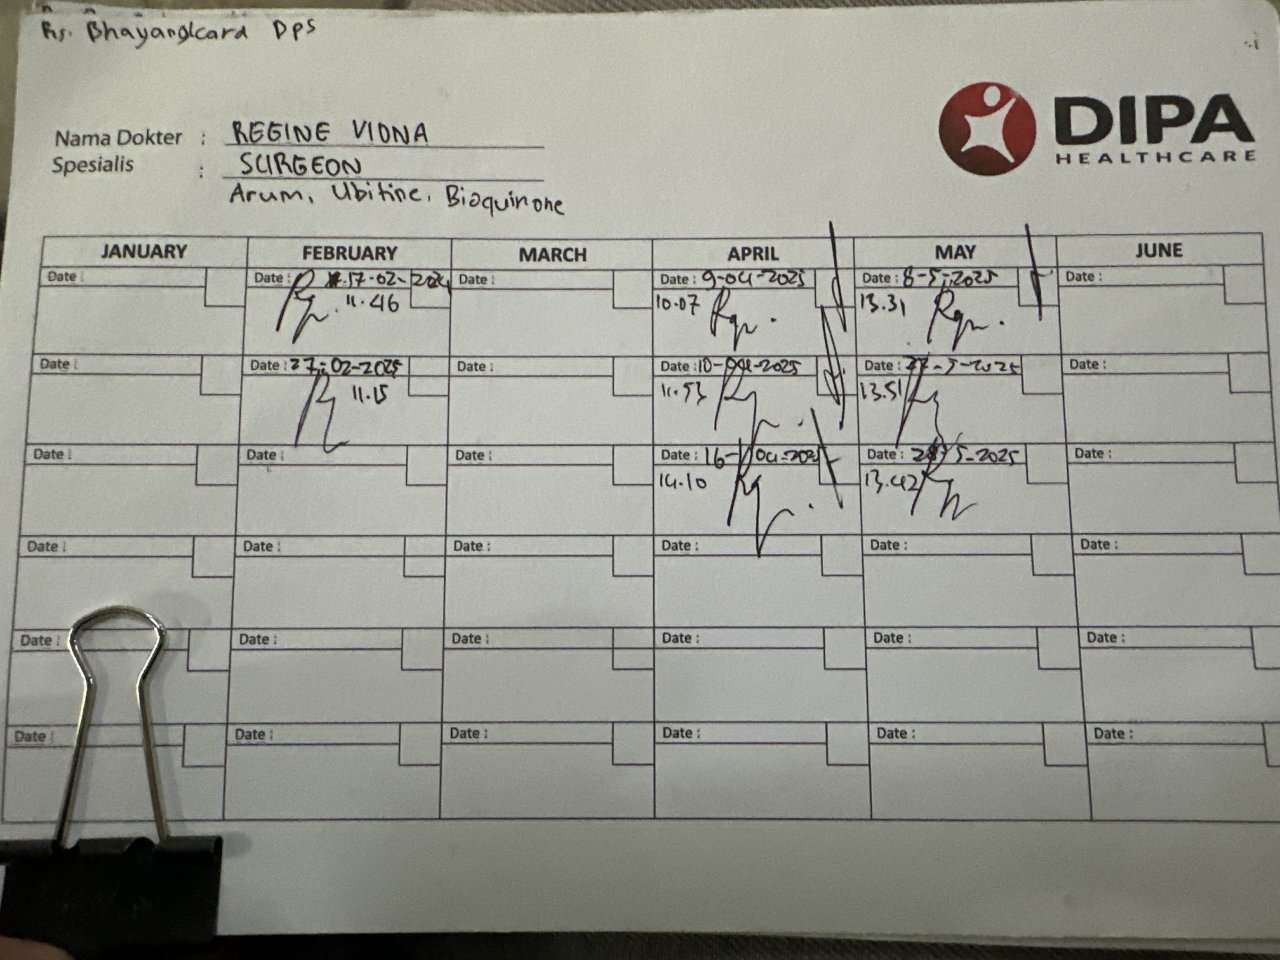 Rs. Bhayangkara DPS
DIPA
HEALTHCARE
Nama Dokter : REGINE VIONA
Spesialis : SURGEON
Arum, Ubitine, Bioquinone
JANUARY FEBRUARY MARCH APRIL MAY JUNE
Date : Date : 17-02-202 Date : Date : 9-04-2025 Date : 8-5-2025 Date :
11.46 10.07 13.31
Date : Date : 27-02-2025 Date : Date : 10-04-2025 Date : 27-5-2025 Date :
11.15 11.53 13.51
Date : Date : Date : Date : 16-04-202 Date : 28-5-2025 Date :
14.10 13.42
Date : Date : Date : Date : Date : Date :
Date : Date : Date : Date : Date : Date :
Date : Date : Date : Date : Date : Date :